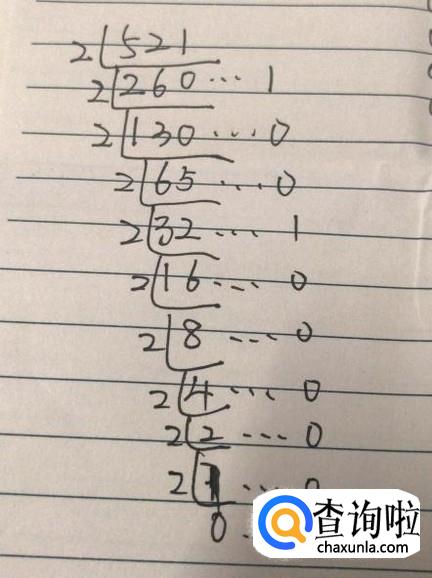 2 521
2 260 ... 1
2 130 ... 0
2 65 ... 0
2 32 ... 1
2 16 ... 0
2 8 ... 0
2 4 ... 0
2 2 ... 0
2 1 ... 0
0
查询啦
chaxunla.com